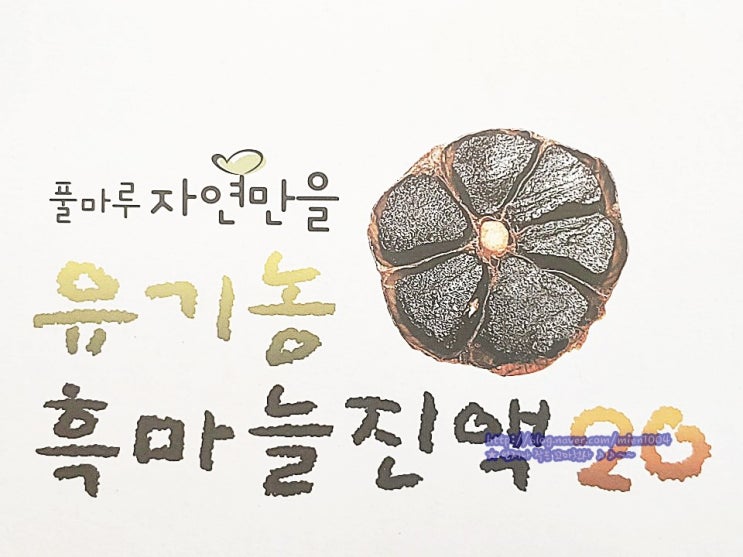 풀마루 자연만을
유기농
흑마늘진액20
http://blog.naver.com/mien1004